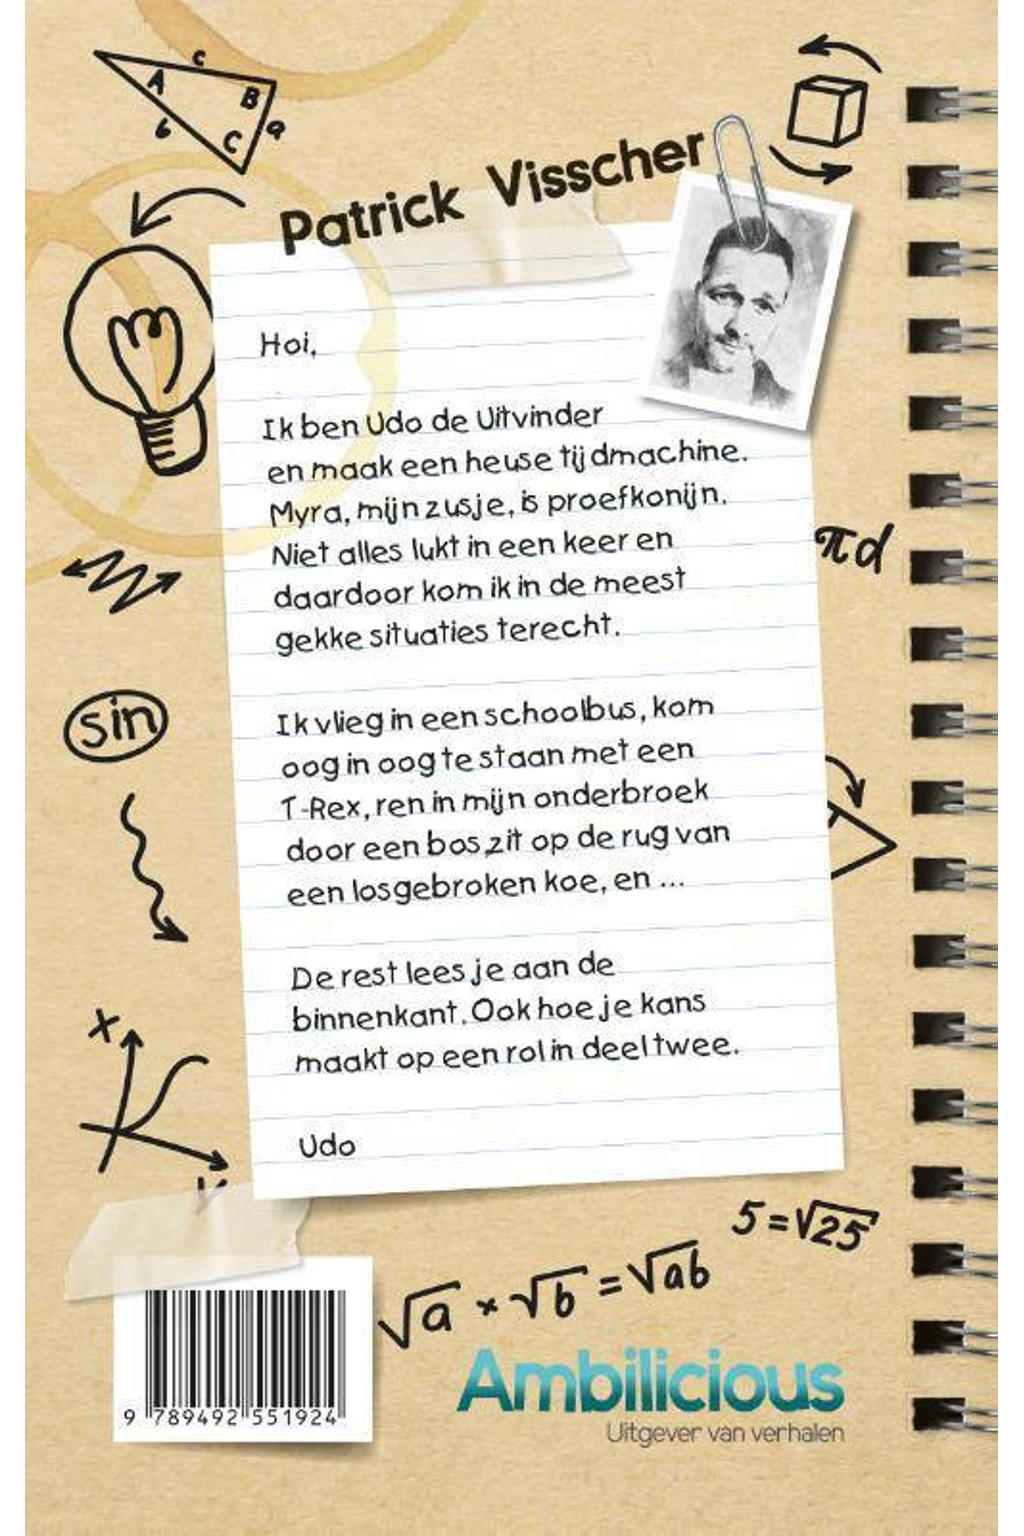 c
A
B
b
C
a
Patrick Visscher
Hoi,
Ik ben Udo de Uitvinder
en maak een heuse tijdmachine.
Myra, mijn zusje, is proefkonijn.
Niet alles lukt in een keer en
daardoor kom ik in de meest
gekke situaties terecht.
πd
sin
Ik vlieg in een schoolbus, kom
oog in oog te staan met een
T-Rex, ren in mijn onderbroek
door een bos, zit op de rug van
een losgebroken koe, en ...
De rest lees je aan de
binnenkant. Ook hoe je kans
maakt op een rol in deel twee.
X
Udo
5=√25
√a × √b = √ab
Ambilicious
Uitgever van verhalen
9 789492 551924